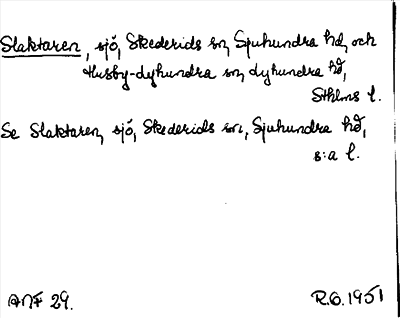 Slaktaren, sjö, Skederids sn, Sjuhundra hd, och
Husby-Lyhundra sn, Lyhundra hd,
Sthlms l.
Se Slaktaren, sjö, Skederids sn, Sjuhundra hd,
s:a l.
ANF 29. R.O. 1951